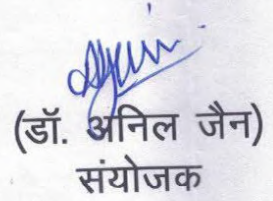 (डॉ. अनिल जैन)
संयोजक